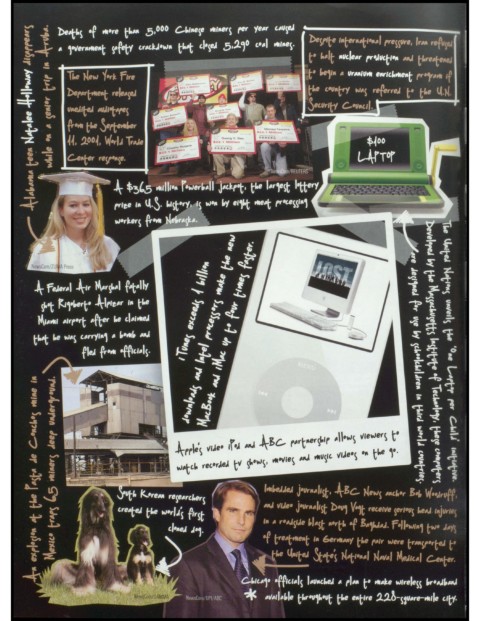 Deaths of more than 5,000 Chinese miners per year caused
a government safety crackdown that closed 5,290 coal mines.
Despite international pressure, Iran refused
to halt nuclear production and threatened
to begin a uranium enrichment program if
the country was referred to the U.N.
Security Council.
Alabama teen Natalee Holloway disappears
while on a senior trip in Aruba.
The New York Fire
Department released
unedited audiotapes
from the September
11, 2001, World Trade
Center response.
$100
LAPTOP
A $365 million Powerball jackpot, the largest lottery
prize in U.S. history, is won by eight meat processing
workers from Nebraska.
The United Nations unveils the "One Laptop per Child" initiative.
Developed by the Massachusetts Institute of Technology, these computers
are designed for use by schoolchildren in third world countries.
A Federal Air Marshal fatally
shot Rigoberto Alpizar in the
Miami airport after he claimed
that he was carrying a bomb and
fled from officials.
iTunes exceeds 1 billion
downloads and Intel processors make the new
MacBook and iMac up to four times faster.
LOST
MENU
Apple's video iPod and ABC partnership allows viewers to
watch recorded tv shows, movies and music videos on the go.
An explosion at the Pasta de Conchos mine in
Mexico traps 65 miners deep underground.
South Korean researchers
created the world's first
cloned dog.
Imbedded journalist, ABC News anchor Bob Woodruff,
and video journalist Doug Vogt receive serious head injuries
in a roadside blast north of Baghdad. Following two days
of treatment in Germany the pair were transported to
the United State's National Naval Medical Center.
Chicago officials launched a plan to make wireless broadband
* available throughout the entire 228-square-mile city.